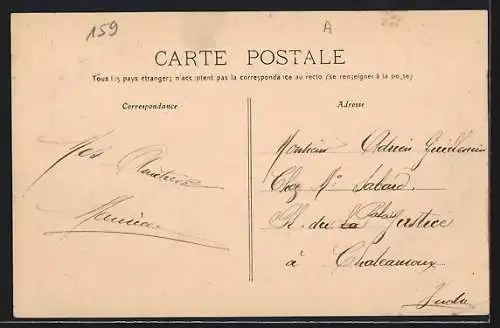 159
A
CARTE POSTALE
Tous les pays étrangers n'acceptent pas la correspondance au recto (se renseigner à la poste)
Correspondance
Adresse
Mes Amitiés
Monsieur Adrien Guillemin
Chez Mr Sabard.
Pl. du La Palais Justice
à Chateauroux
Indre